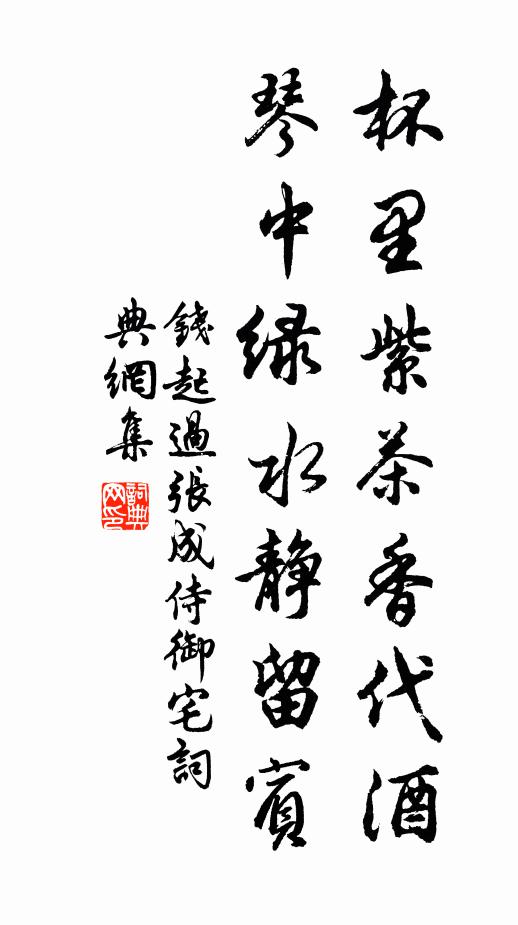 杯里紫茶香代酒
琴中绿水静留賓
錢起過張成侍御宅詞
典網集
詞典网印